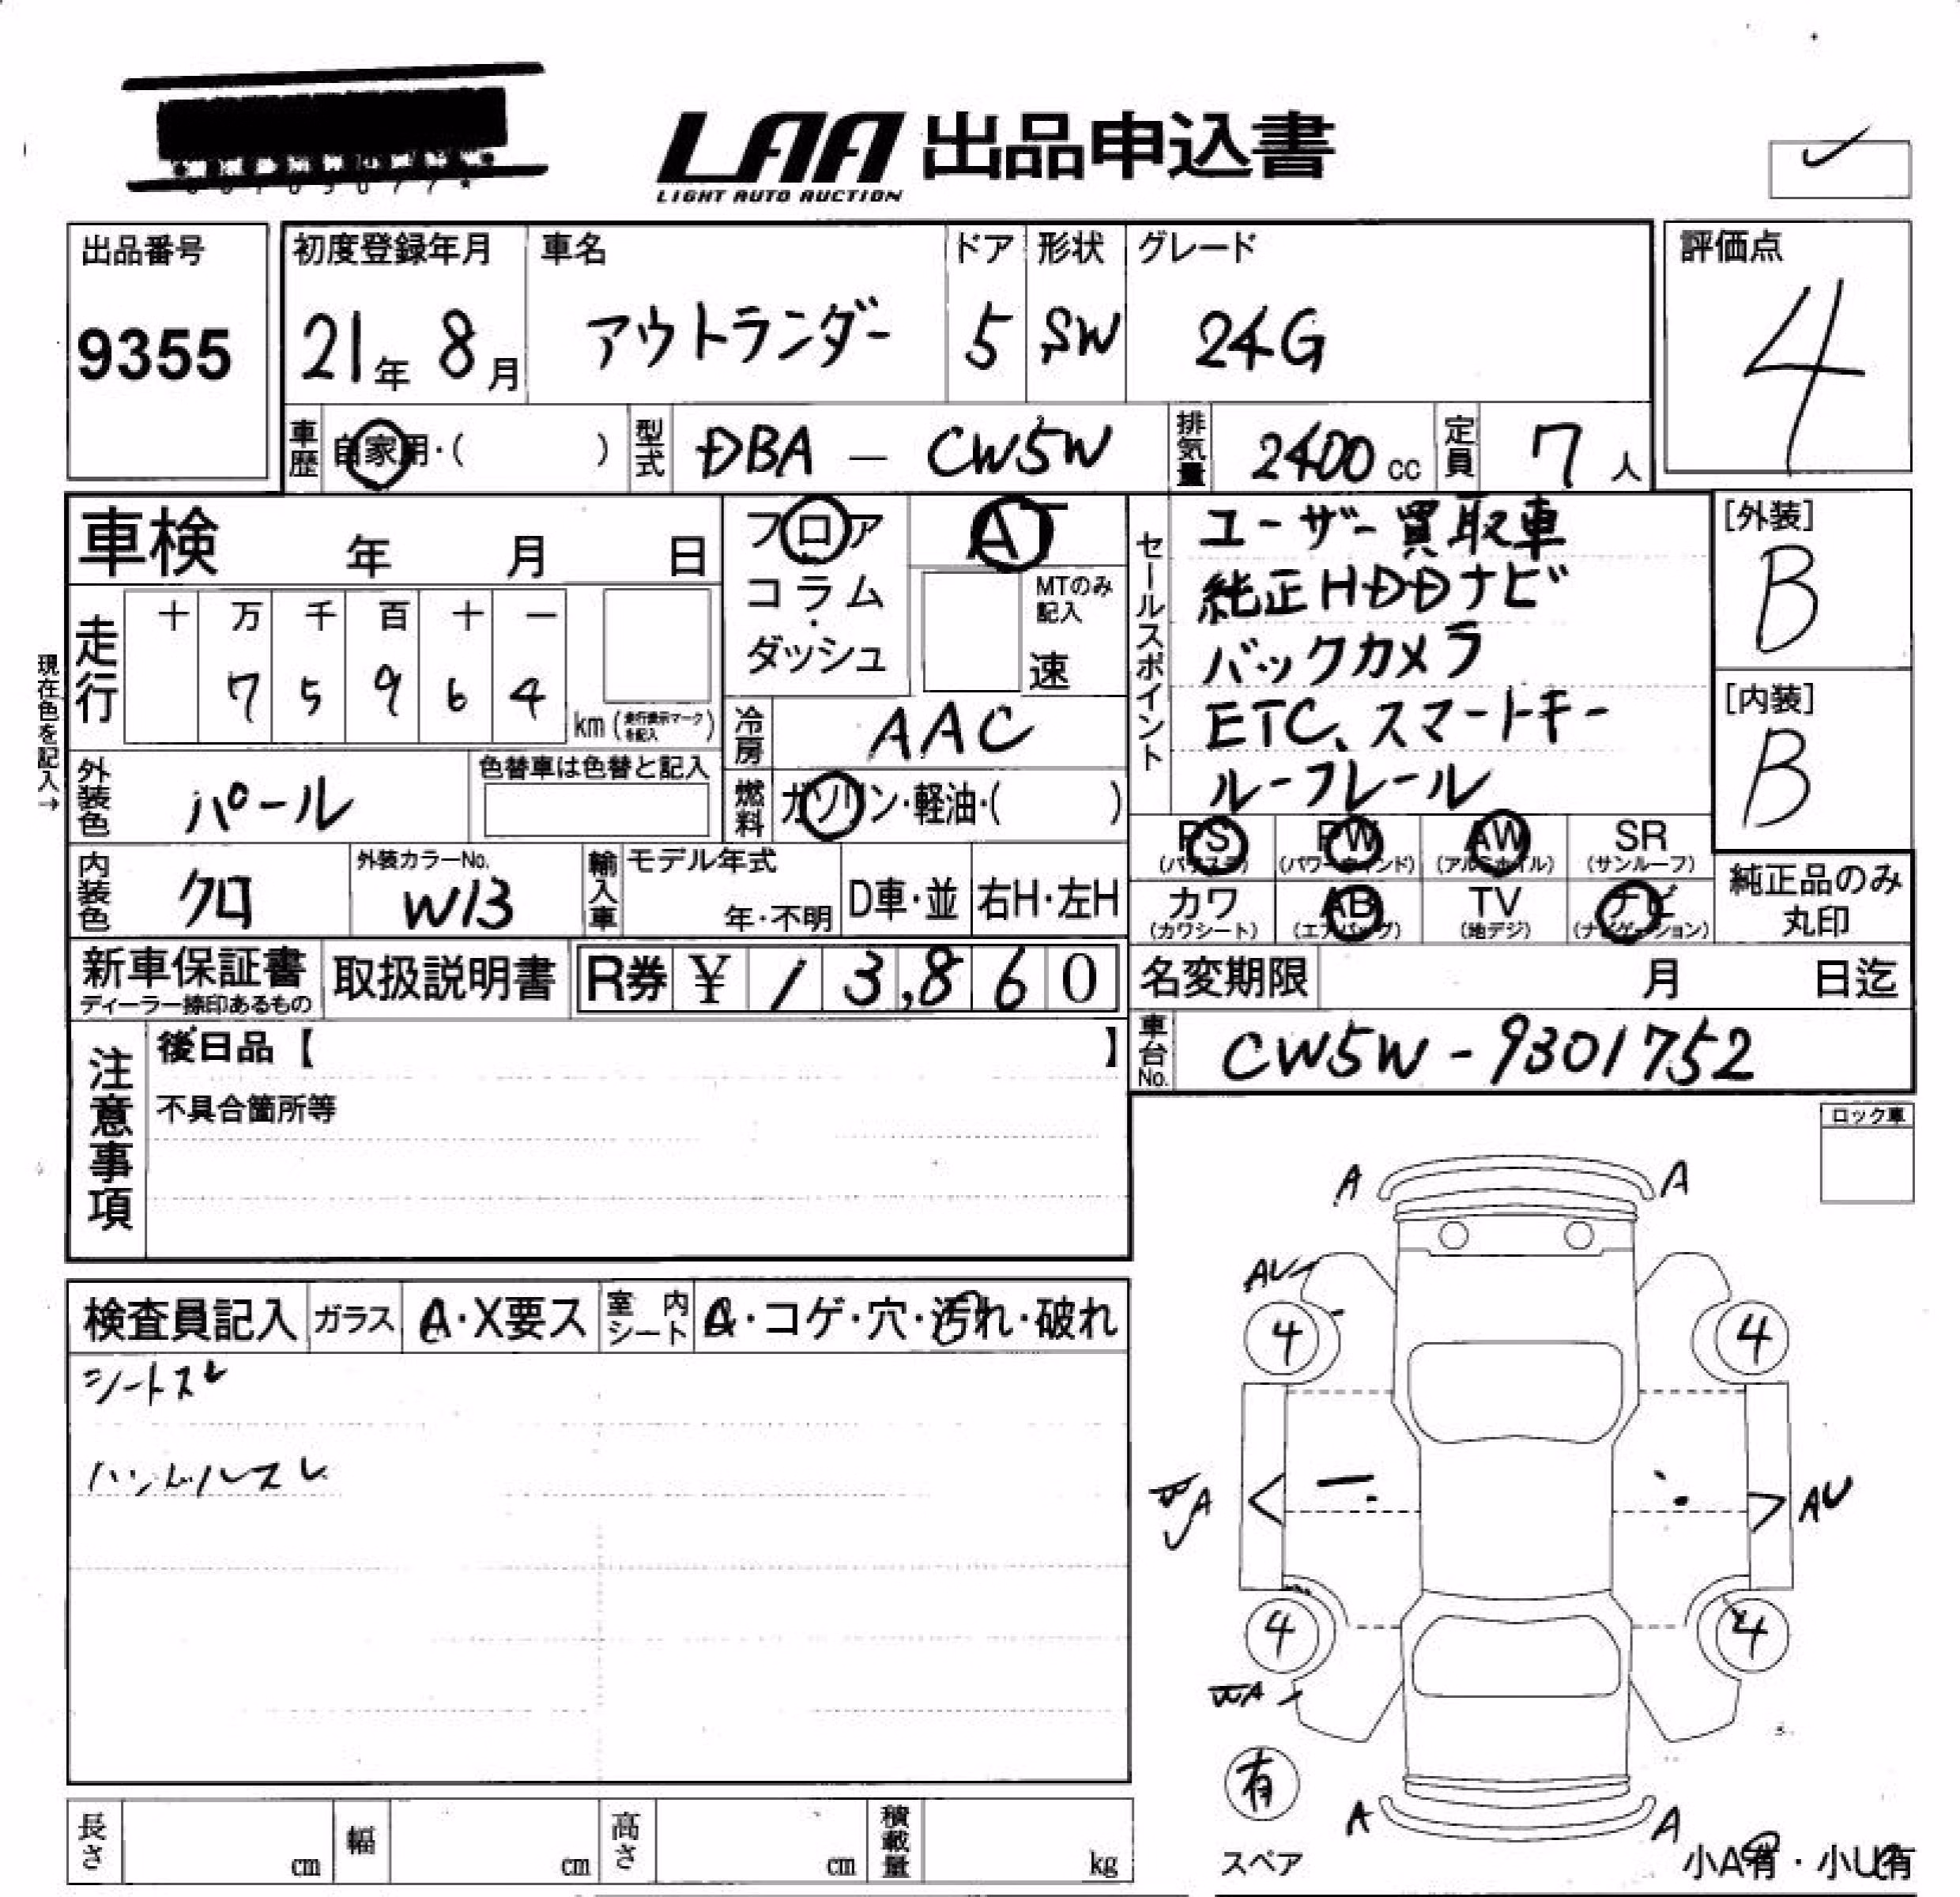 LAA 出品申込書
LIGHT AUTO AUCTION
出品番号
9355
初度登録年月 車名 ドア 形状 グレード
21年 8月 アウトランダー 5 SW 24G
評価点
4
車歴 自家用・( ) 型式 DBA - CW5W 排気量 2400cc 定員 7人
車検 年 月 日
フロア
コラム
・
ダッシュ
AT
MTのみ
記入
速
現在色を記入→
走行 十 万 千 百 十 一
7 5 9 6 4
km(走行表示マークを記入)
冷房 AAC
外装色 パール
色替車は色替と記入
燃料 ガソリン・軽油・( )
内装色 クロ
外装カラーNo.
W13
輸入車 モデル年式
年・不明
D車・並 右H・左H
セールスポイント
ユーザー買取車
純正HDDナビ
バックカメラ
ETC、スマートキー
ルーフレール
[外装]
B
[内装]
B
PS PW AW SR
(パワステ) (パワーウィンド) (アルミホイル) (サンルーフ)
カワ AB TV ナビ
(カワシート) (エアバッグ) (地デジ) (ナビゲーション)
純正品のみ
丸印
新車保証書
ディーラー捺印あるもの
取扱説明書 R券 ¥ 13,860
名変期限 月 日迄
車台No. CW5W-9301752
注意事項
後日品【 】
不具合箇所等
ロック車
検査員記入 ガラス A・X要ス 室内シート Q・コゲ・穴・汚れ・破れ
シートスレ
ハンドルスレ
A A
AU
4 4
A AU
4 4
A
有
スペア
A A
小A有・小U有
長さ cm 幅 cm 高さ cm 積載量 kg